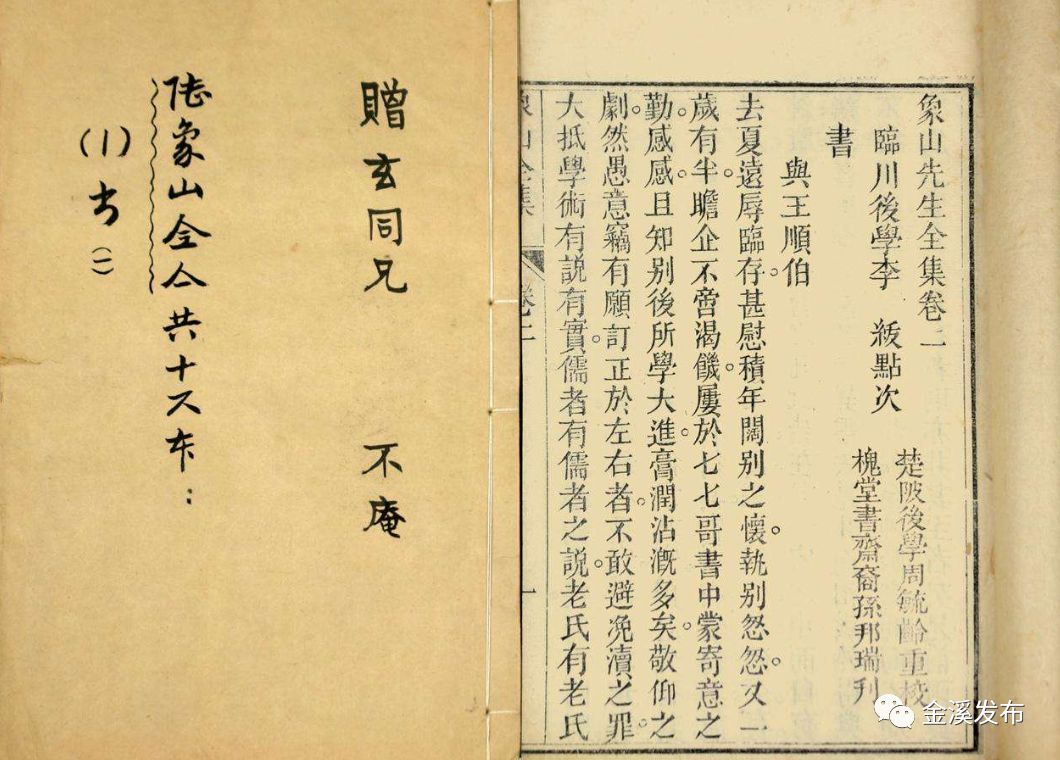 象山先生全集卷二
臨川後學李 紱點次
楚陂後學周毓齡重校
槐堂書齋裔孫邦瑞刋
書
與王順伯
去夏遠辱臨存。甚慰積年闊别之懷。執别怱怱。又一
歲有半。瞻企不啻渴饑。屢於七七哥書中蒙寄意之
勤。感感。且知别後所學大進。膏潤沾漑多矣。敬仰之
劇。然愚意竊有願訂正於左右者。不敢避免瀆之罪。
大抵學術有說有實。儒者有儒者之說。老氏有老氏
象山全集 卷二 一
贈玄同兄 不庵
陆象山全亼共十 本：
(1) 书 (一)
金溪发布